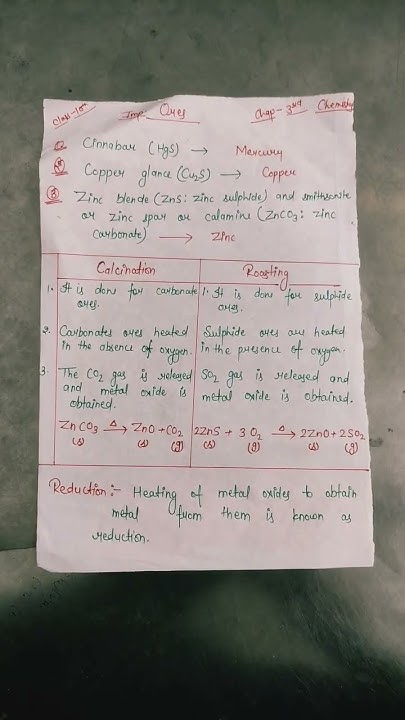 Class-10th Imp. Ores Chap-3rd Chemistry
① Cinnabar (HgS) → Mercury
② Copper glance (Cu2S) → Copper
③ Zinc blende (ZnS: zinc sulphide) and smithsonite
or zinc spar or calamine (ZnCO3: zinc
carbonate) → Zinc
Calcination
1. It is done for carbonate
ores.
2. Carbonates ores heated
in the absence of oxygen.
3. The CO2 gas is released
and and metal oxide is
obtained.
ZnCO3 (s) —Δ→ ZnO (s) + CO2 (g)
Roasting
1. It is done for sulphide
ores.
Sulphide ores are heated
in the presence of oxygen.
SO2 gas is released and
metal oxide is obtained.
2ZnS (s) + 3O2 (g) —Δ→ 2ZnO (s) + 2SO2 (g)
Reduction:- Heating of metal oxides to obtain
metal from them is known as
reduction.